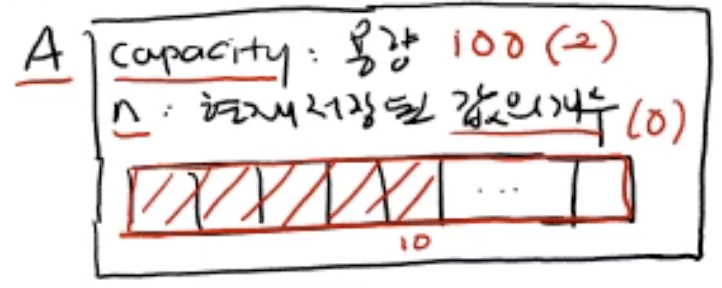 A capacity : 용량 100 (2)
n : 현재 저장된 값의 개수 (0)
...
10